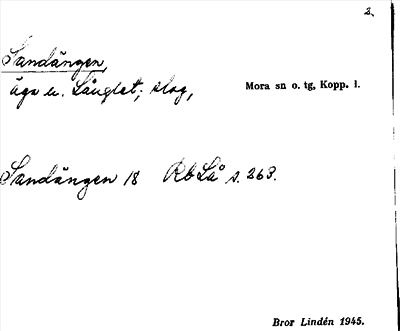 2.
Sandängen,
äga u. Långlet; slog,
Mora sn o. tg, Kopp. l.
Sandängen 18 Rb Lå s. 263.
Bror Lindén 1945.